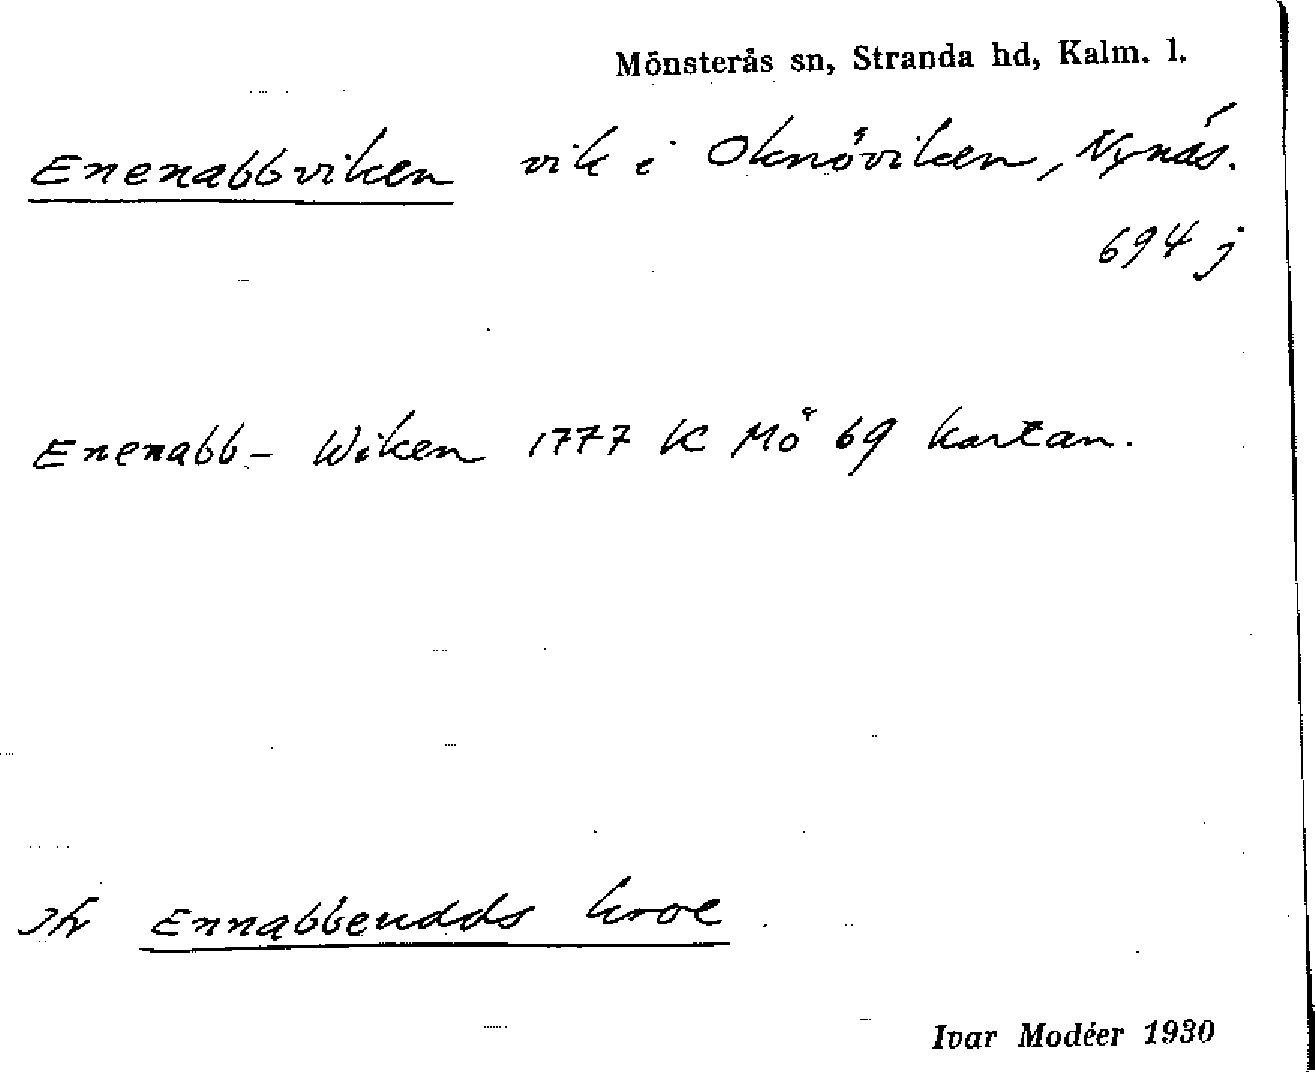 Mönsterås sn, Stranda hd, Kalm. l.
Enenabbviken vik i Oknöviken, Nynäs.
694 j
Enenabb- Wiken 1777 K Mö 69 kartan.
Jfr Ennabbeudds kroe
Ivar Modéer 1930